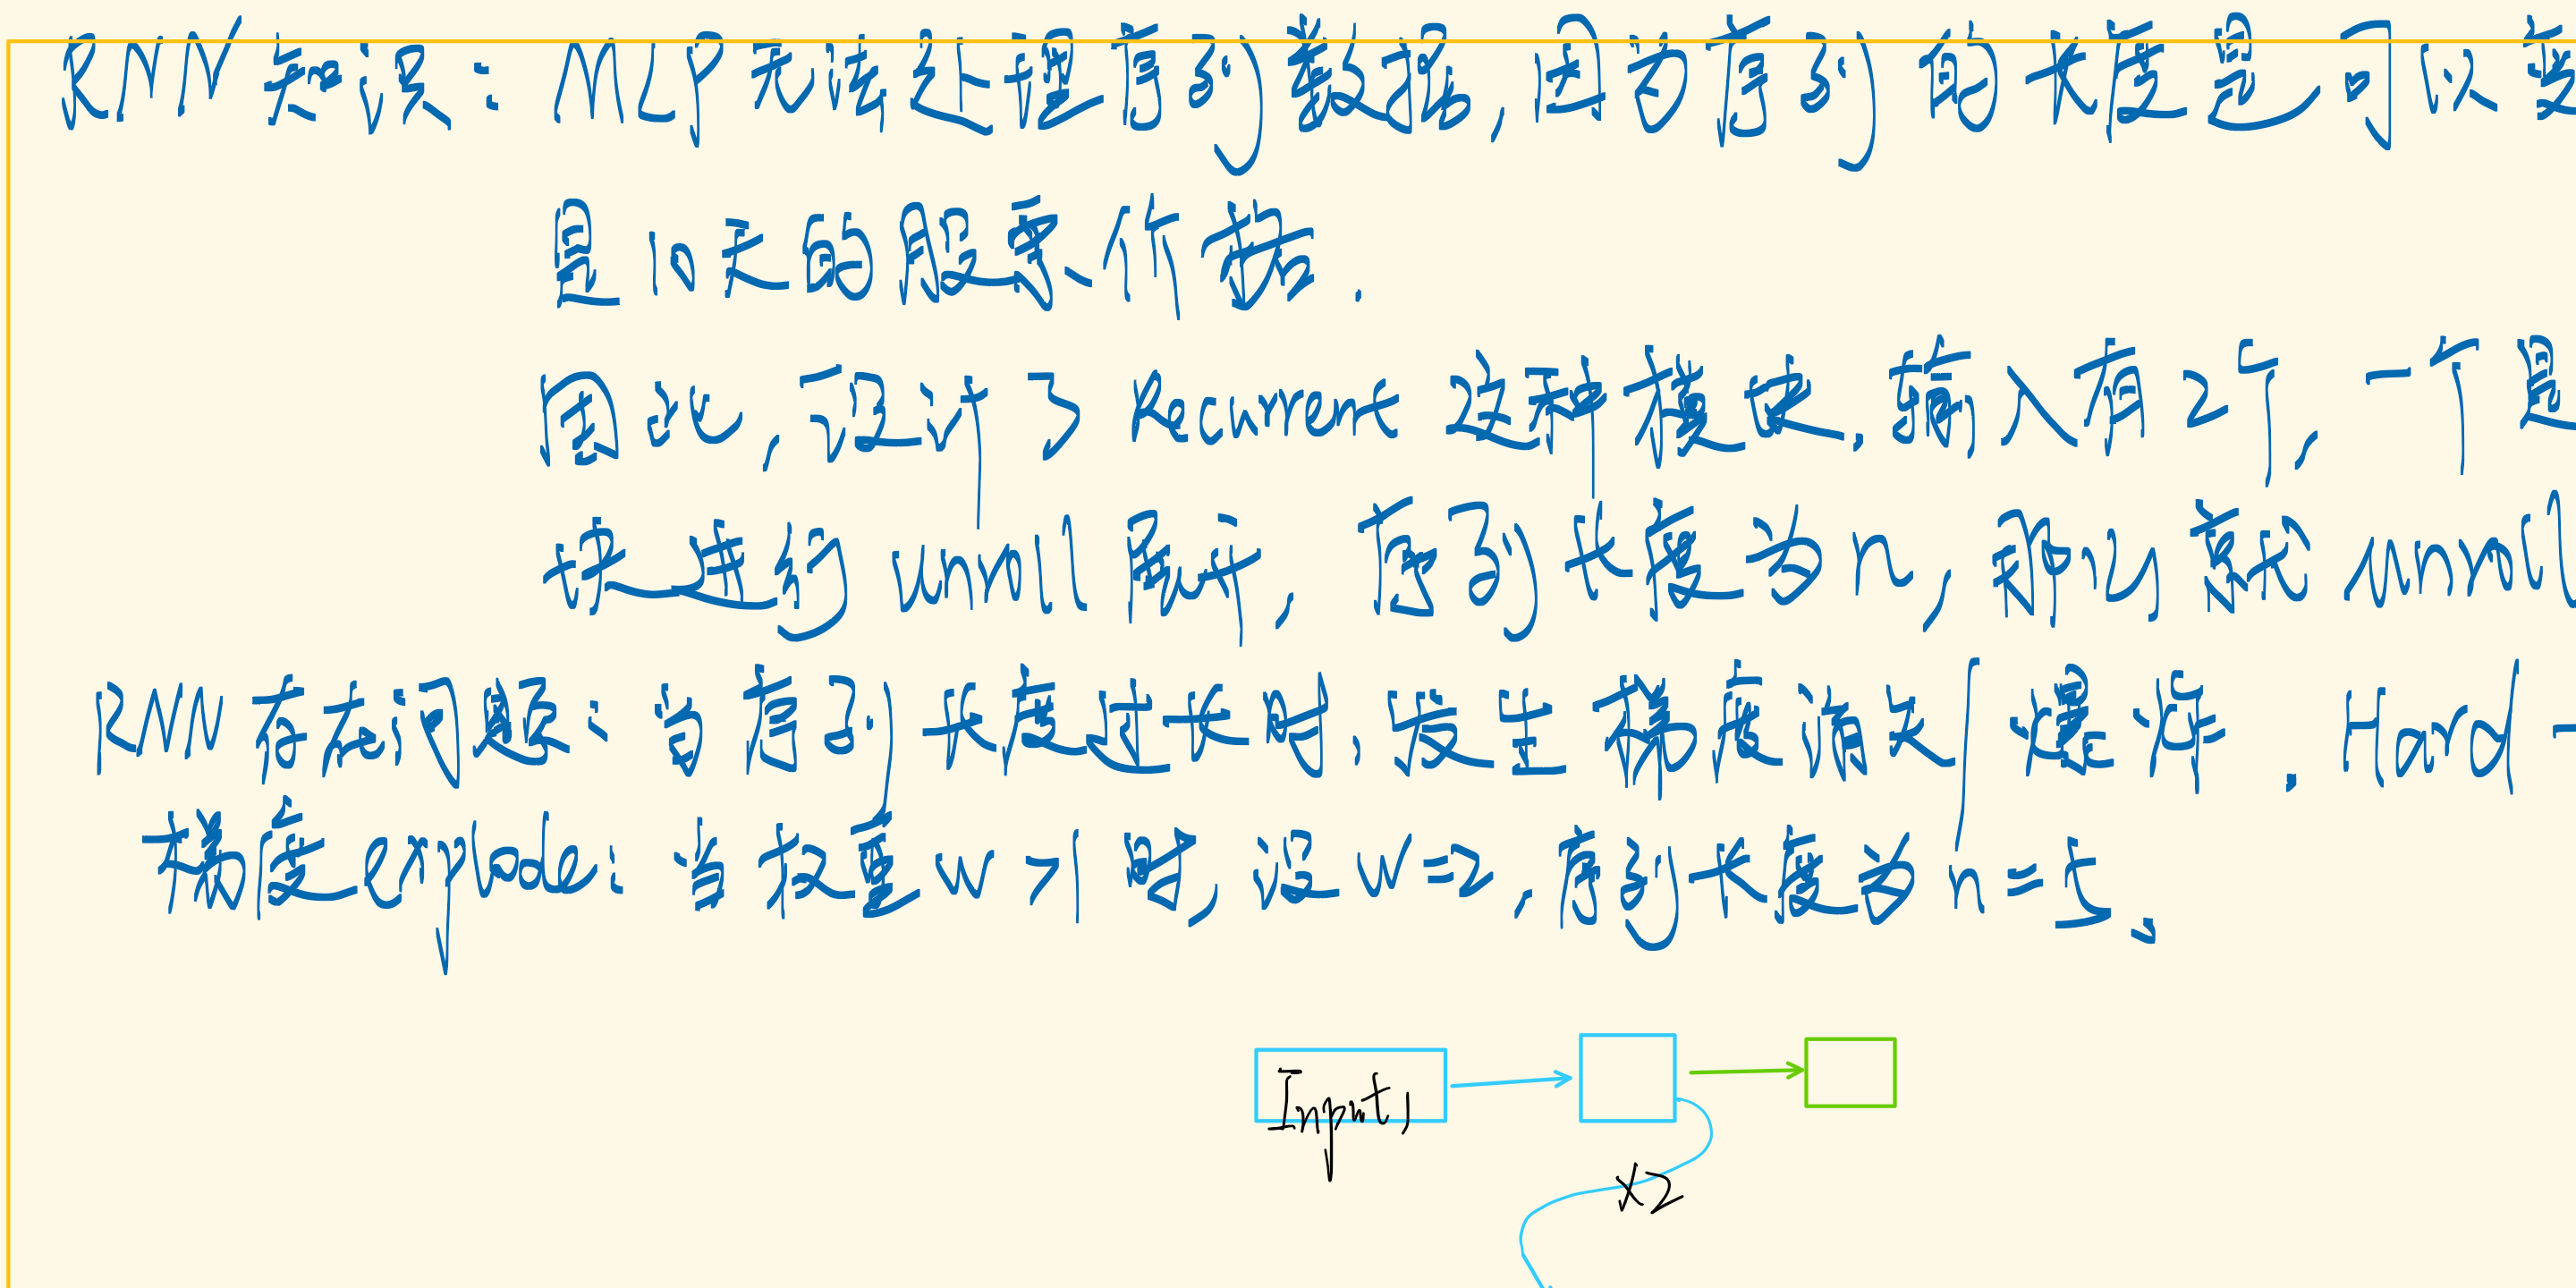 RNN 知识: MLP无法处理序列数据,因为序列的长度是可以变
是10天的股票价格.
因此,设计了Recurrent这种模块.输入有2个,一个是
块进行unroll展开,序列长度为n,那么就unroll
RNN存在问题:当序列长度过长时,发生梯度消失/爆炸.Hard-
梯度explode:当权重w>1时,设w=2,序列长度为n=5、
Input1
x2